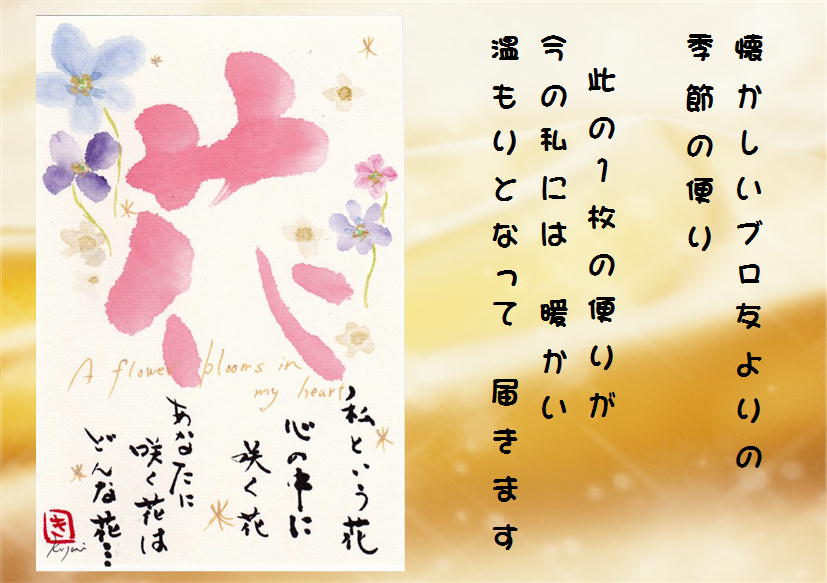 懐かしいブロ友よりの
季節の便り
此の1枚の便りが
今の私には 暖かい
温もりとなって 届きます
花
A flower blooms in
my heart
私という花
心の中に
咲く花
あなたに
咲く花は
どんな花…